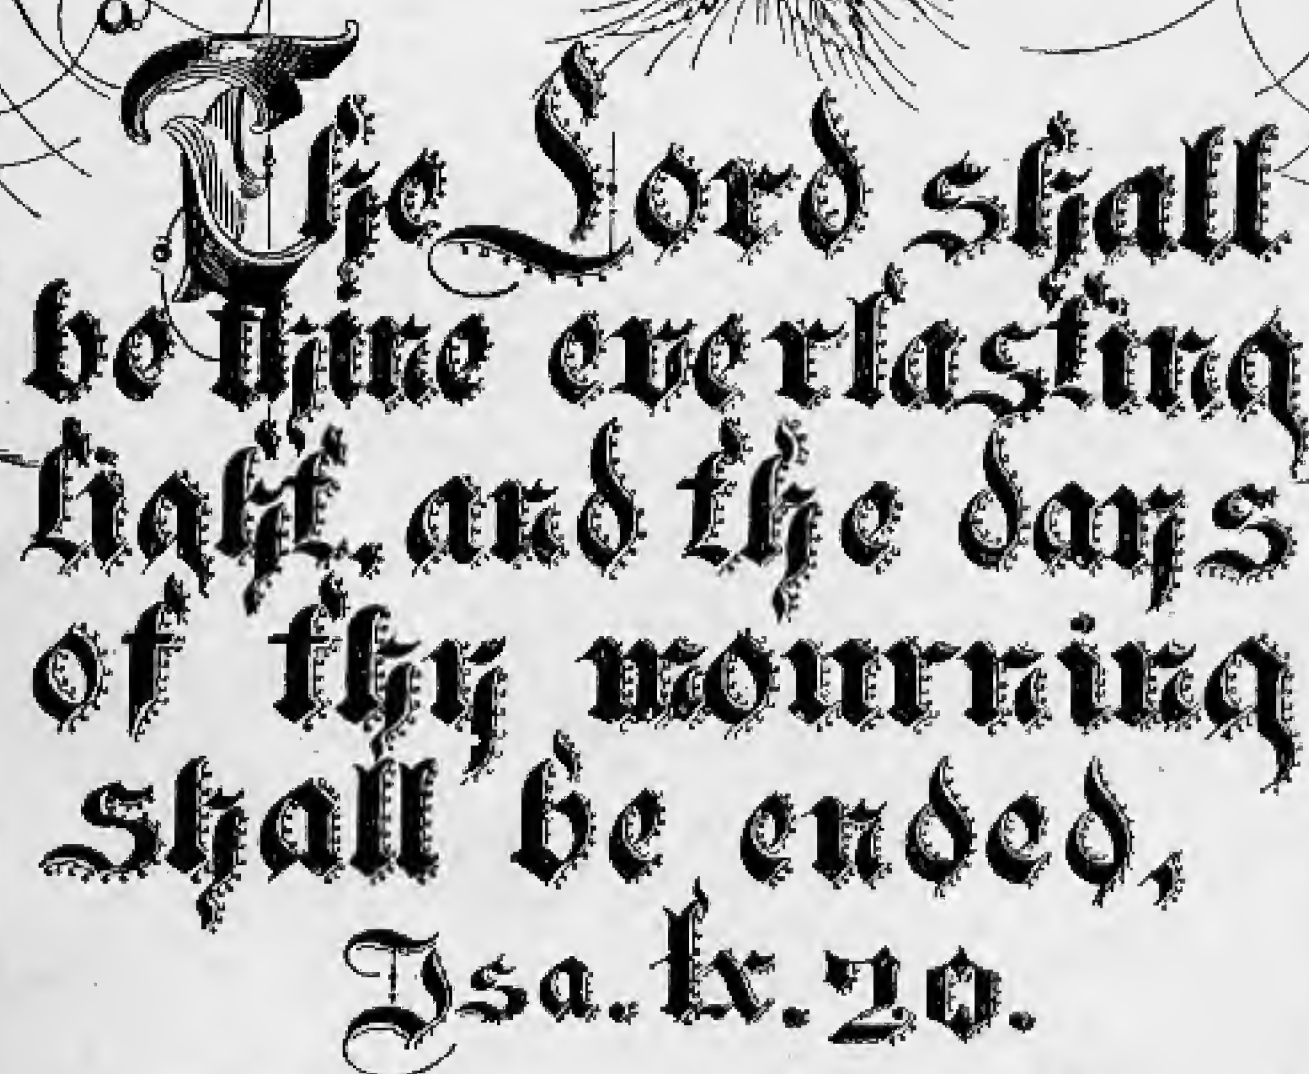 The Lord shall
be thine everlasting
light, and the days
of thy mourning
shall be ended,
Isa. lx. 20.